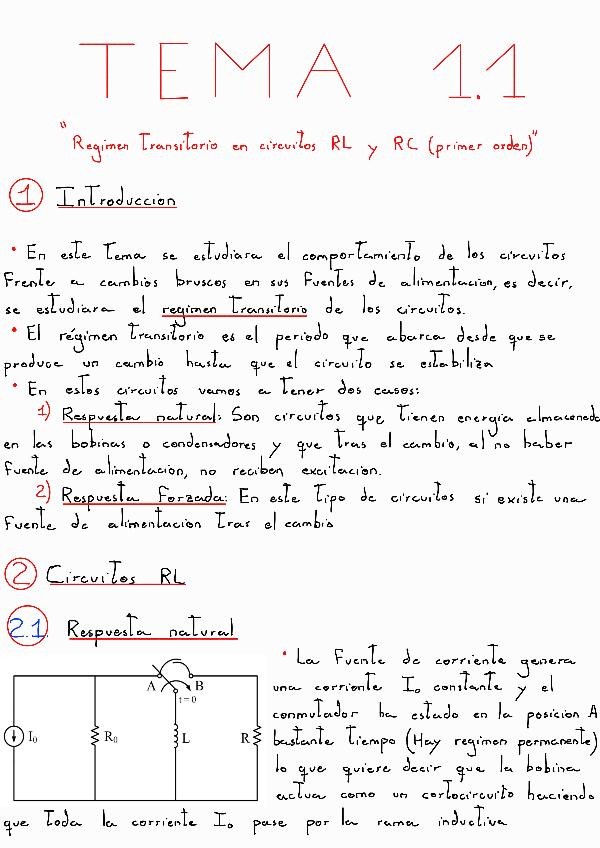 TEMA 1.1
"Regimen Transitorio en circuitos RL y RC (primer orden)"
1 Introduccion
• En este Tema se estudiara el comportamiento de los circuitos
Frente a cambios bruscos en sus Fuentes de alimentacion, es decir,
se estudiara el regimen Transitorio de los circuitos.
• El régimen Transitorio es el periodo que abarca desde que se
produce un cambio hasta que el circuito se estabiliza
• En estos circuitos vamos a Tener dos casos:
1) Respuesta natural: Son circuitos que Tienen energia almacenada
en las bobinas o condensadores y que tras el cambio, al no haber
Fuente de alimentacion, no reciben excitacion.
2) Respuesta Forzada: En este Tipo de circuitos si existe una
Fuente de alimentacion Tras el cambio
2 Circuitos RL
2.1 Respuesta natural
• La Fuente de corriente genera
una corriente I₀ constante y el
conmutador ha estado en la posicion A
bastante Tiempo (Hay regimen permanente)
lo que quiere decir que la bobina
actua como un cortocircuito haciendo
que Toda la corriente I₀ pase por la rama inductiva
A B
t = 0
I₀ R₀ L R